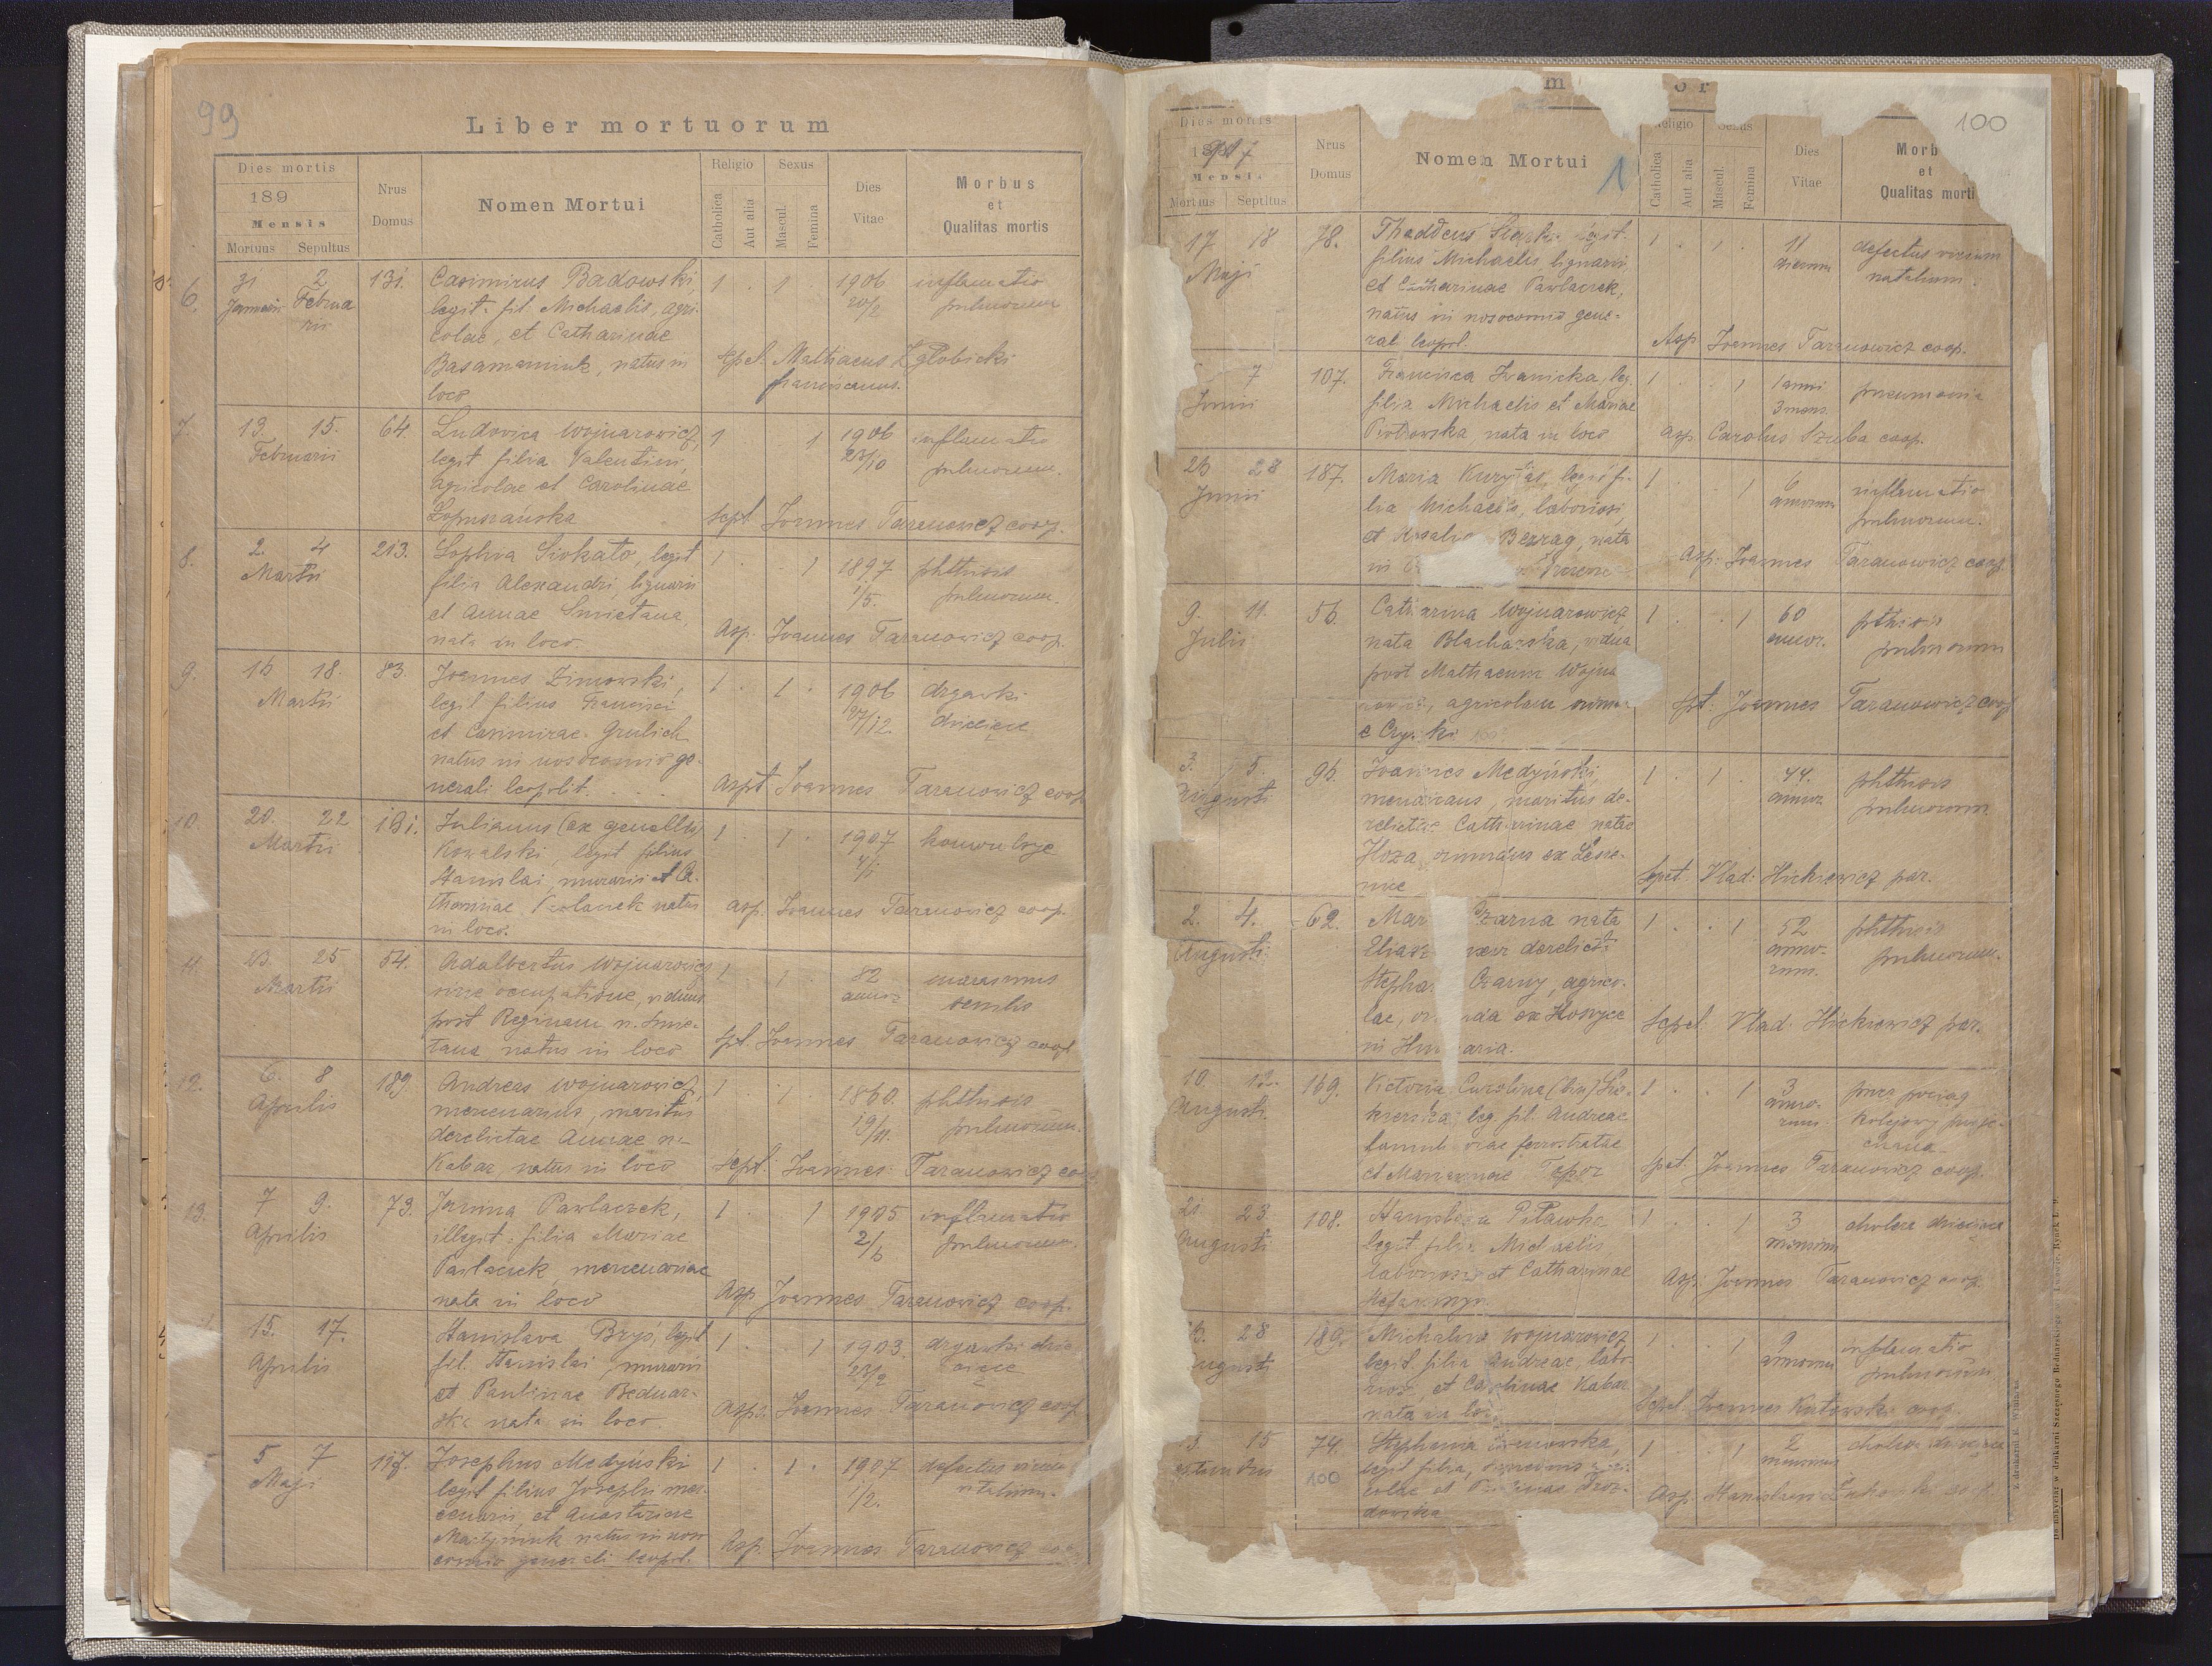 99
Liber mortuorum
Dies mortis
189
Mensis
Mortuus Sepultus
Nrus
Domus
Nomen Mortui
Religio
Catholica
Aut alia
Sexus
Mascul.
Femina
Dies
Vitae
Morbus
et
Qualitas mortis
6. 31 2 131. Casimirus Badowski, 1 . 1 . 1906 inflamatio
Januarii Februa legit. fil. Michaelis, agri- 20/2 pulmonum
rii colae, et Catharinae
Basamaniuk, natus in Spel. Mathaeus Zglobicki
loco franciscanus.
7. 13. 15. 64. Ludovica Wojnarowicz, 1 1 1906 inflamatio
Februarii legit filia Valentini, 23/10 pulmonum.
agricolae et Carolinae
Łopuszańska Sept. Joannes Taranowicz coop.
8. 2. 4 213. Sophia Sirkato, legit 1 . . 1 1897 phthisis
Martii filia Alexandri, lignarii 1/5. pulmonum.
et Annae Smietana,
nata in loco. Asp. Joannes Taranowicz coop.
9. 16 18. 83. Joannes Zimowski, 1 . 1 . 1906 drgawki
Martii legit filius Francisci 27/12. dziecięce
et Casimirae Grulich
natus in nosocomio ge-
nerali leopolit. Aspt. Joannes Taranowicz coop.
10. 20. 22 181. Julianus (ex gemellis) 1 . 1 . 1907 konwulsje
Martii Kowalski, legit filius 4/1
Stanislai, murarii et Ca-
tharinae natus Asp. Joannes Taranowicz coop.
in loco.
11. 23. 25 54. Adalbertus Wojnarowicz 1 . 1 . 82 marasmus
Martii sine occupatione, viduus annor. senilis
post Reginam n. Smie-
tana natus in loco Spt. Joannes Taranowicz coop.
12. 6. 8 189. Andreas Wojnarowicz, 1 . 1 . 1860. phthisis
Aprilis mercenarius, maritus 19/11. pulmonum.
derelictae Annae n.
Kabar, natus in loco Sept. Joannes Taranowicz coop.
13. 7 9. 73. Janina Pawlaczek, 1 . . 1 1905 inflamatio
Aprilis illegit. filia Mariae 2/6 pulmonum.
Pawlaczek, mercenariae
nata in loco Asp. Joannes Taranowicz coop.
15. 17. Stanislava Bryś, legit 1 . . 1 1903. drgawki dzie
Aprilis fil. Stanislai, murarii 23/2 cięce
et Paulinae Bednar-
ska nata in loco Asp. Joannes Taranowicz coop.
5 7 117. Josephus Medyński 1 . 1 . 1907 defectus virium
Maji legit filius Josephi mer- 1/2. vitalium.
cenarii, et Anastasiae
Martyniuk natus in noso
comio generali leopol. Asp. Joannes Taranowicz
m or
100
Dies mortis
1907
Mensis
Mortuus Septltus
Nrus
Domus
Nomen Mortui 1
eligio
Catholica
Aut alia
Sexus
Mascul.
Femina
Dies
Vitae
Morb
et
Qualitas morti
17. 18 78. Thaddeus legit. 1 . 1 . 11 defectus virium
Maji filius Michaelis, lignarii, dierum natalium.
et Catharinae Pawlaczek,
natus in nosocomio gene-
ral. leopol. Asp Joannes Taranowicz coop.
7 107. Francisca Iwanicka, leg. 1 . . 1 1 anni pneumonia
Junii filia Michaelis et Mariae 3 mens.
Piotrowska, nata in loco Asp. Carolus Szuba coop.
26 28 187. Maria Kuryłas, legit fi- 1 . . 1 6 inflamatio
Junii lia Michaelis, laboriosi, annorum pulmonum.
et Berrag, nata
in Asp. Joannes Taranowicz coop.
9. 11. 56. Catharina Wojnarowicz 1 . . 1 60 pthisis
Julii nata Blacharska, vidua annor. pulmonum
post Mathaeum Wojna
agricolam Spt. Joannes Taranowicz coop.
e
3. 5. 96. Joannes Medyński, 1 . 1 . 44. phthisis
Augusti mendicans, maritus de- annor. pulmonum
relictae Catharinae natae
Hoza, oriundus ex Lesie-
nice Sepet. Vlad. Hickiewicz par.
2. 4. 62. Mar Czarna nata 1 . . 1 52 phthisis
Augusti. Eliasz derelict. anno- pulmonum.
Stepha Czarny, agrico- rum.
lae, or nda ex Hosnyce Sepel. Vlad. Hickiewicz par.
in Hun aria.
10. 12. 169. Victoria Carolina (bin) 1 . . 1 3 przez pociąg
Augusti leg. fil. Andreae anno- kolejowy przeje-
famuli viae ferrostratae rum chana
et Mariannae Topor Spet. Joannes Taranowicz coop.
21 23. 108. Stanislava Piławka 1 . . 1 3 cholera dziecięca
Augusti legit. filia Michaelis mensium
laboriosi et Catharinae Asp. Joannes Taranowicz coop.
28 189. Michalina Wojnarowicz 1 . . 1 9 inflamatio
ugusti legit. filia Andreae, labo- annorum pulmonum
riosi, et Carolinae Kabar
nata in Sepel. Joannes Kutowski coop.
15 74. Stephania 1 . . 1 2
100 legit filia, mensium
colae et Droz-
dowska Asp. Stanislaus